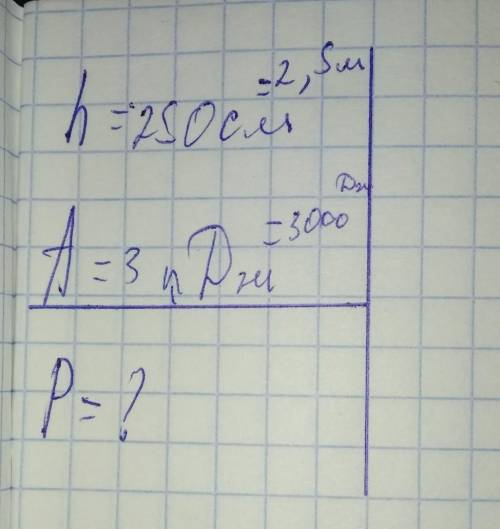 h = 250 см = 2,5 м
A = 3 кДж = 3000 Дж
P = ?